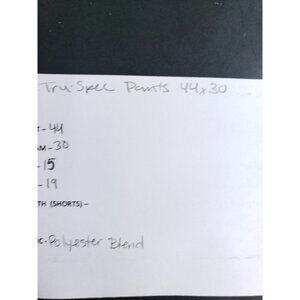 Tru-Spec Pants 44x30
T-44
AM-30
-15
-19
TH (SHORTS)-
IC-Polyester Blend